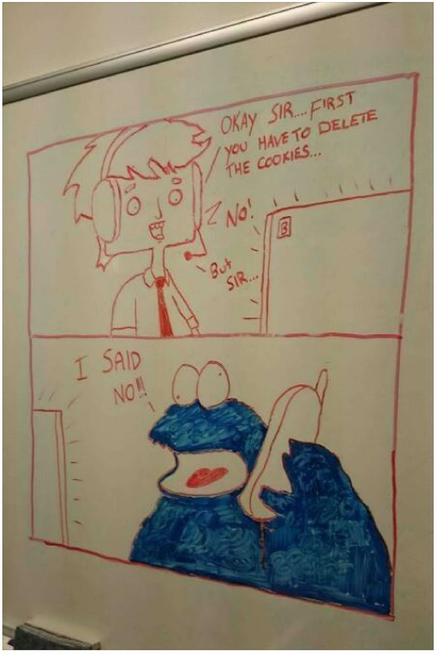 OKAY SIR....FIRST
YOU HAVE TO DELETE
THE COOKIES...
NO!
BUT
SIR....
I SAID
NO!!!